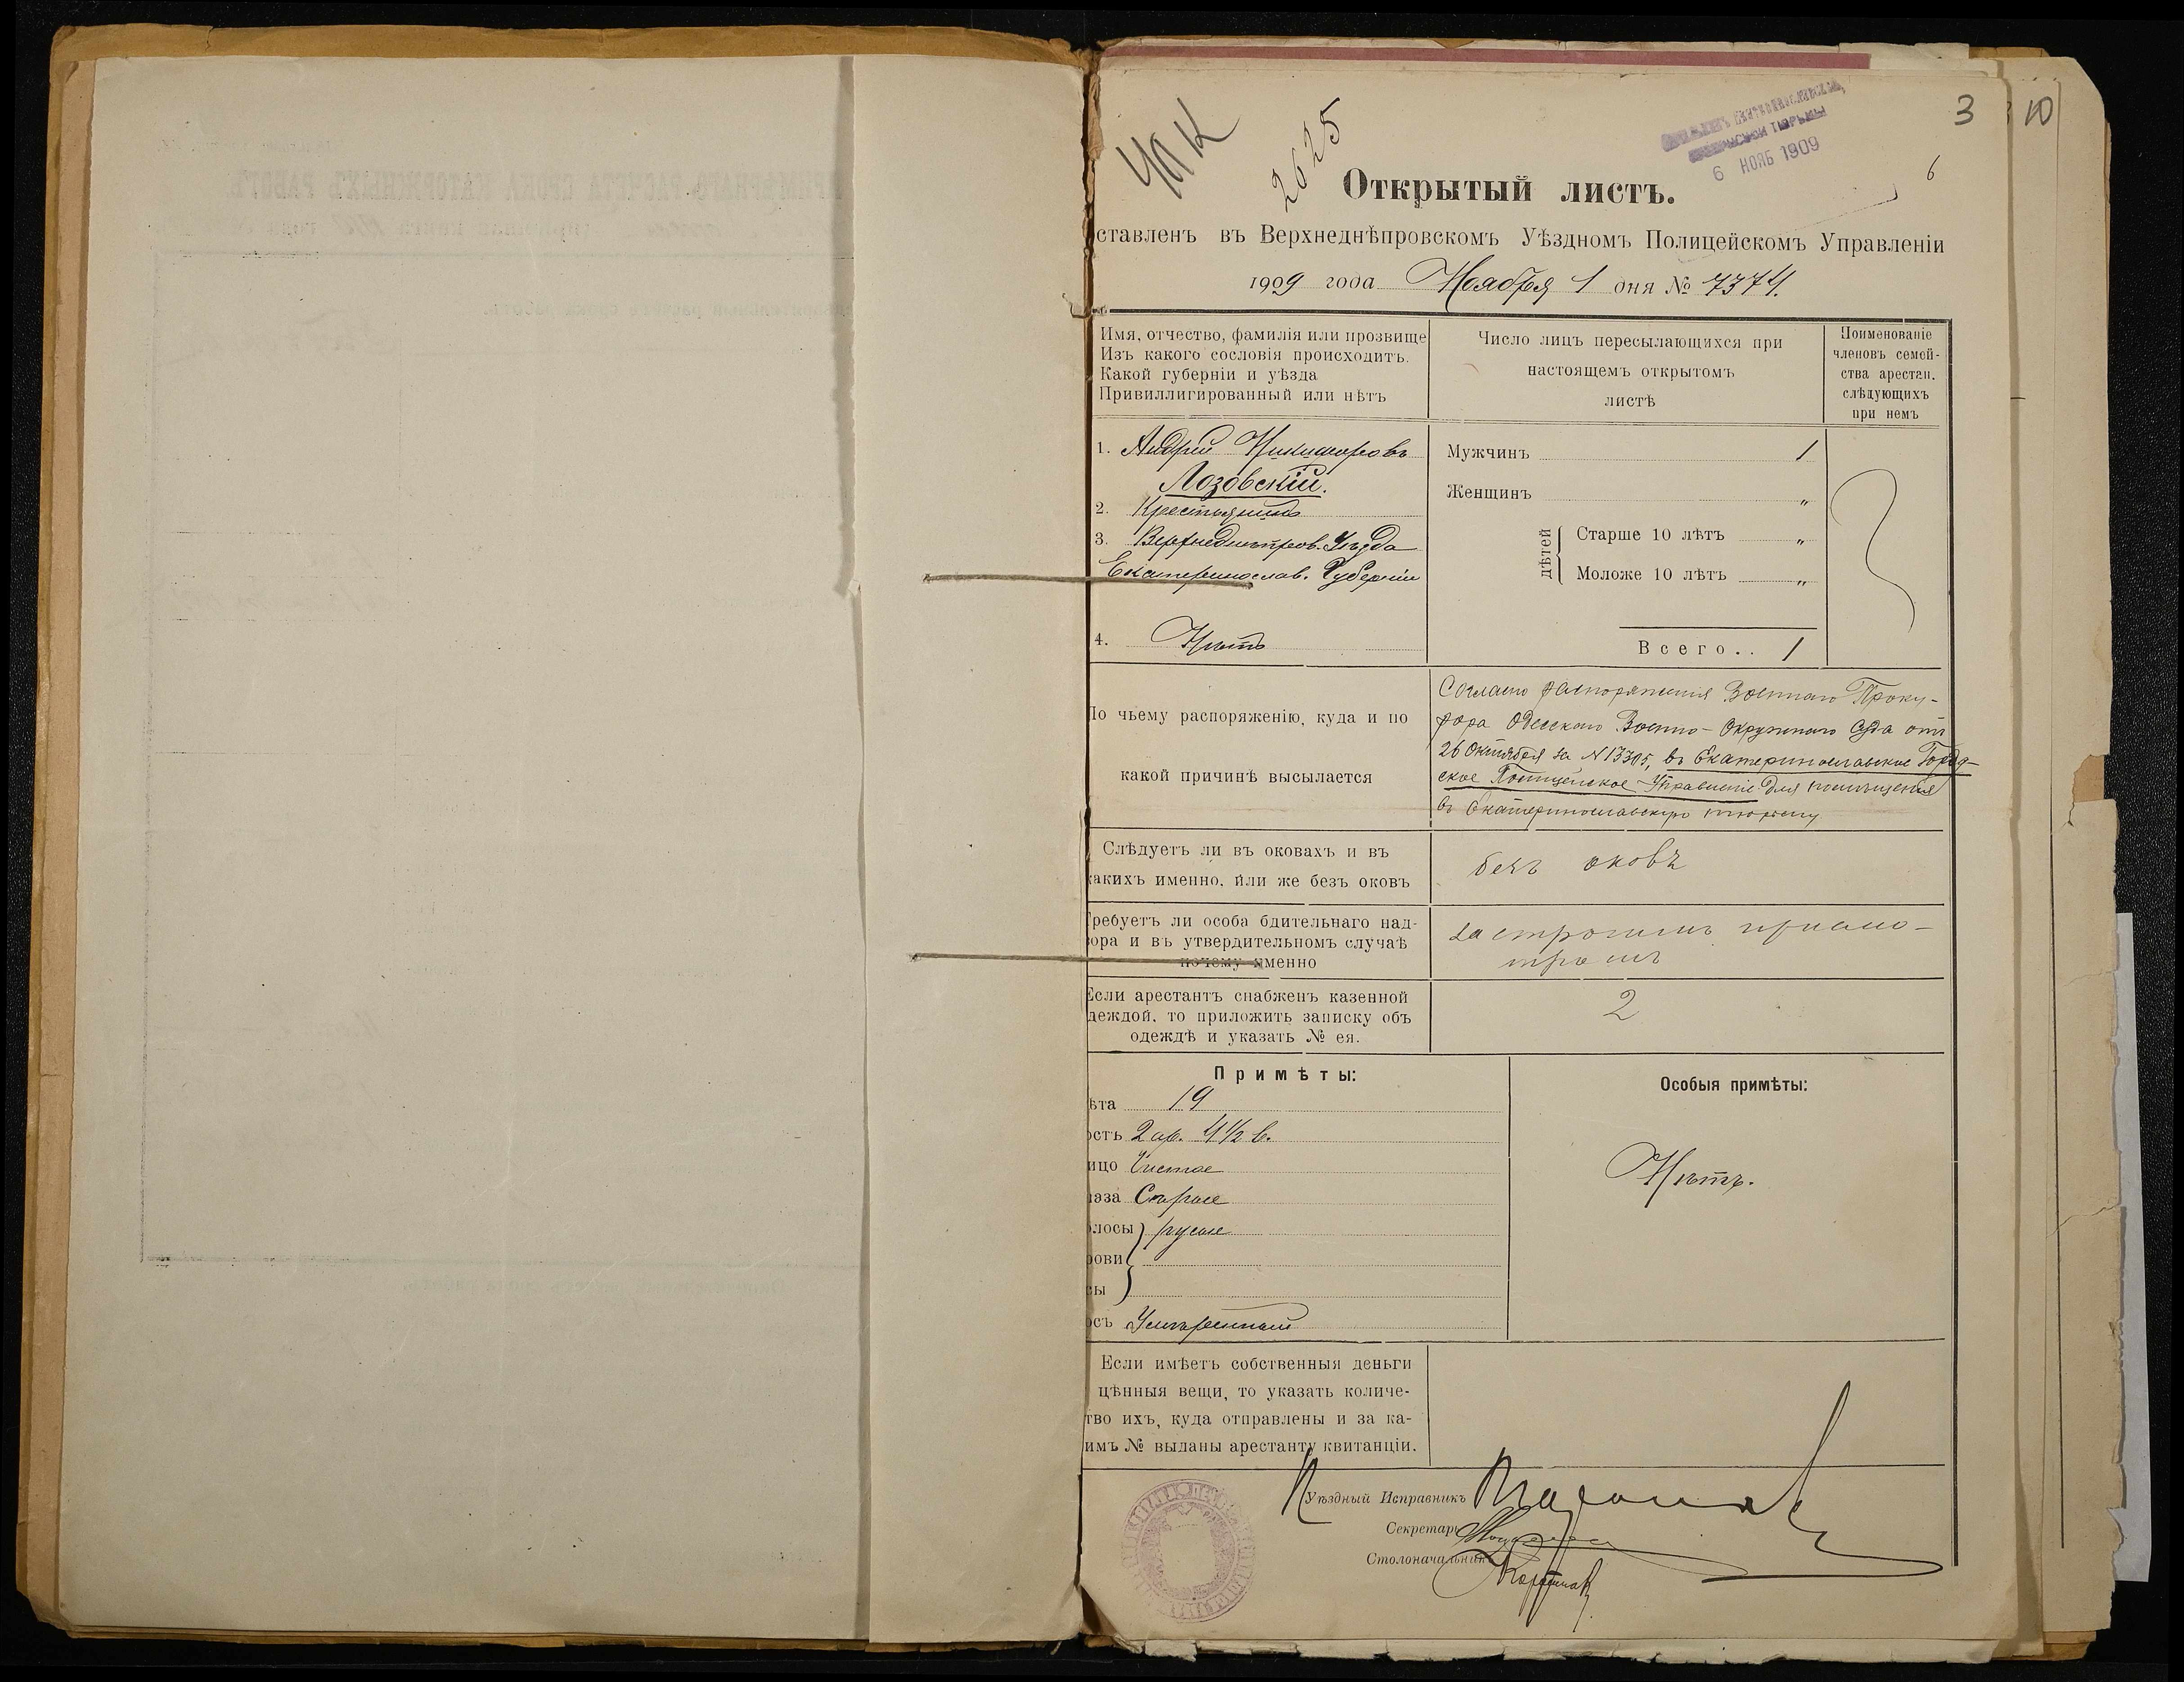 3
10
6
ЧЯК
2625
Екатеринославской
губернской тюрьмы
6 НОЯБ 1909
Открытый листъ.
ставленъ въ Верхнеднѣпровскомъ Уѣздномъ Полицейскомъ Управленіи
1909 года Ноября 1 дня № 7374.
Имя, отчество, фамилія или прозвище
Изъ какого сословія происходитъ.
Какой губерніи и уѣзда
Привиллигированный или нѣтъ
Число лицъ пересылающихся при
настоящемъ открытомъ
листѣ
Поименованіе
членовъ семей-
ства арестан.
слѣдующихъ
при немъ
1. Андрей Никифоровъ
Лозовскій.
2. Крестьянинъ
3. Верхнеднѣпров. Уѣзда
Екатеринослав. Губерніи
4. Нѣтъ
Мужчинъ 1
Женщинъ "
дѣтей
Старше 10 лѣтъ "
Моложе 10 лѣтъ "
Всего.. 1
По чьему распоряженію, куда и по
какой причинѣ высылается
Согласно распоряженія Военнаго Проку-
рора Одесскаго Военно-Окружнаго Суда отъ
26 Октября за №13305, въ Екатеринославское Город-
ское Полицейское Управленіе для помѣщенія
въ Екатеринославскую тюрьму
Слѣдуетъ ли въ оковахъ и въ
какихъ именно, или же безъ оковъ
безъ оковъ
Требуетъ ли особа бдительнаго над-
зора и въ утвердительномъ случаѣ
почему именно
за строгимъ присмо-
тромъ
Если арестантъ снабженъ казенной
деждой, то приложить записку объ
одеждѣ и указать № ея.
2
Примѣты:
ѣта 19
ость 2 ар. 4½ в.
ицо Чистое
аза Сѣрые
лосы русые
рови
сы
осъ Умѣренный
Особыя примѣты:
Нѣтъ.
Если имѣетъ собственныя деньги
цѣнныя вещи, то указать количе-
тво ихъ, куда отправлены и за ка-
имъ № выданы арестанту квитанціи.
Уѣздный Исправникъ
Секретарь
Столоначальникъ